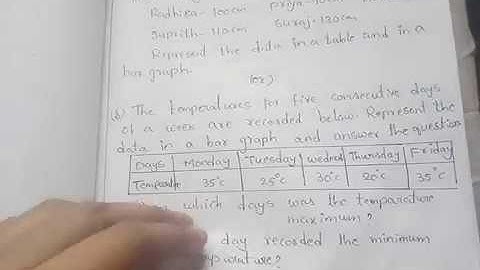 Radhika - 100cm Priya - 90cm
Suprith - 110cm Suraj - 120cm
Represent the data in a table and in a
bar graph.
(or)
b) The temperatures for five consecutive days
of a week are recorded below. Represent the
data in a bar graph and answer the question
Days Monday Tuesday Wednes Thursday Friday
35°C 25°C 30°C 20°C 35°C
which days was the temparature
maximum?
day recorded the minimum